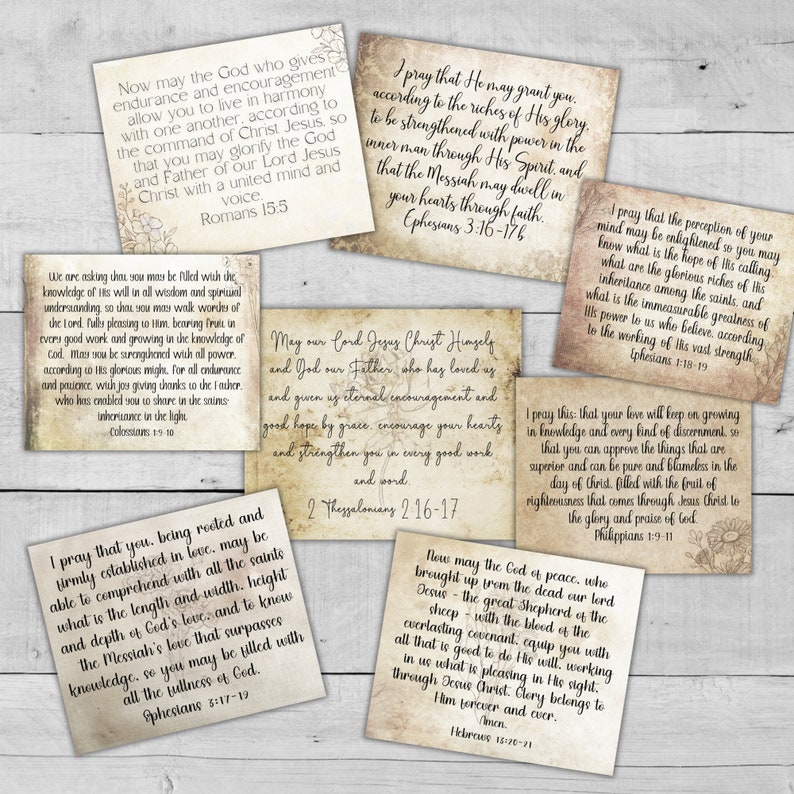 Now may the God who gives
endurance and encouragement
allow you to live in harmony
with one another, according to
the command of Christ Jesus, so
that you may glorify the God
and Father of our Lord Jesus
Christ with a united mind and
voice.
Romans 15:5
I pray that He may grant you,
according to the riches of His glory,
to be strengthened with power in the
inner man through His Spirit, and
that the Messiah may dwell in
your hearts through faith.
Ephesians 3:16-17b
I pray that the perception of your
mind may be enlightened so you may
know what is the hope of His calling,
what are the glorious riches of His
inheritance among the saints, and
what is the immeasurable greatness of
His power to us who believe, according
to the working of His vast strength.
Ephesians 1:18-19
We are asking that you may be filled with the
knowledge of His will in all wisdom and spiritual
understanding, so that you may walk worthy of
the Lord, fully pleasing to Him, bearing fruit in
every good work and growing in the knowledge of
God. May you be strengthened with all power,
according to His glorious might, for all endurance
and patience, with joy giving thanks to the Father,
who has enabled you to share in the saints'
inheritance in the light.
Colossians 1:9-10
May our Lord Jesus Christ Himself
and God our Father, who has loved us
and given us eternal encouragement and
good hope by grace, encourage your hearts
and strengthen you in every good work
and word.
2 Thessalonians 2:16-17
I pray this: that your love will keep on growing
in knowledge and every kind of discernment, so
that you can approve the things that are
superior and can be pure and blameless in the
day of Christ, filled with the fruit of
righteousness that comes through Jesus Christ to
the glory and praise of God.
Philippians 1:9-11
I pray that you, being rooted and
firmly established in love, may be
able to comprehend with all the saints
what is the length and width, height
and depth of God's love, and to know
the Messiah's love that surpasses
knowledge, so you may be filled with
all the fullness of God.
Ephesians 3:17-19
Now may the God of peace, who
brought up from the dead our lord
Jesus - the great Shepherd of the
sheep - with the blood of the
everlasting covenant, equip you with
all that is good to do His will, working
in us what is pleasing in His sight,
through Jesus Christ. Glory belongs to
Him forever and ever.
Amen.
Hebrews 13:20-21